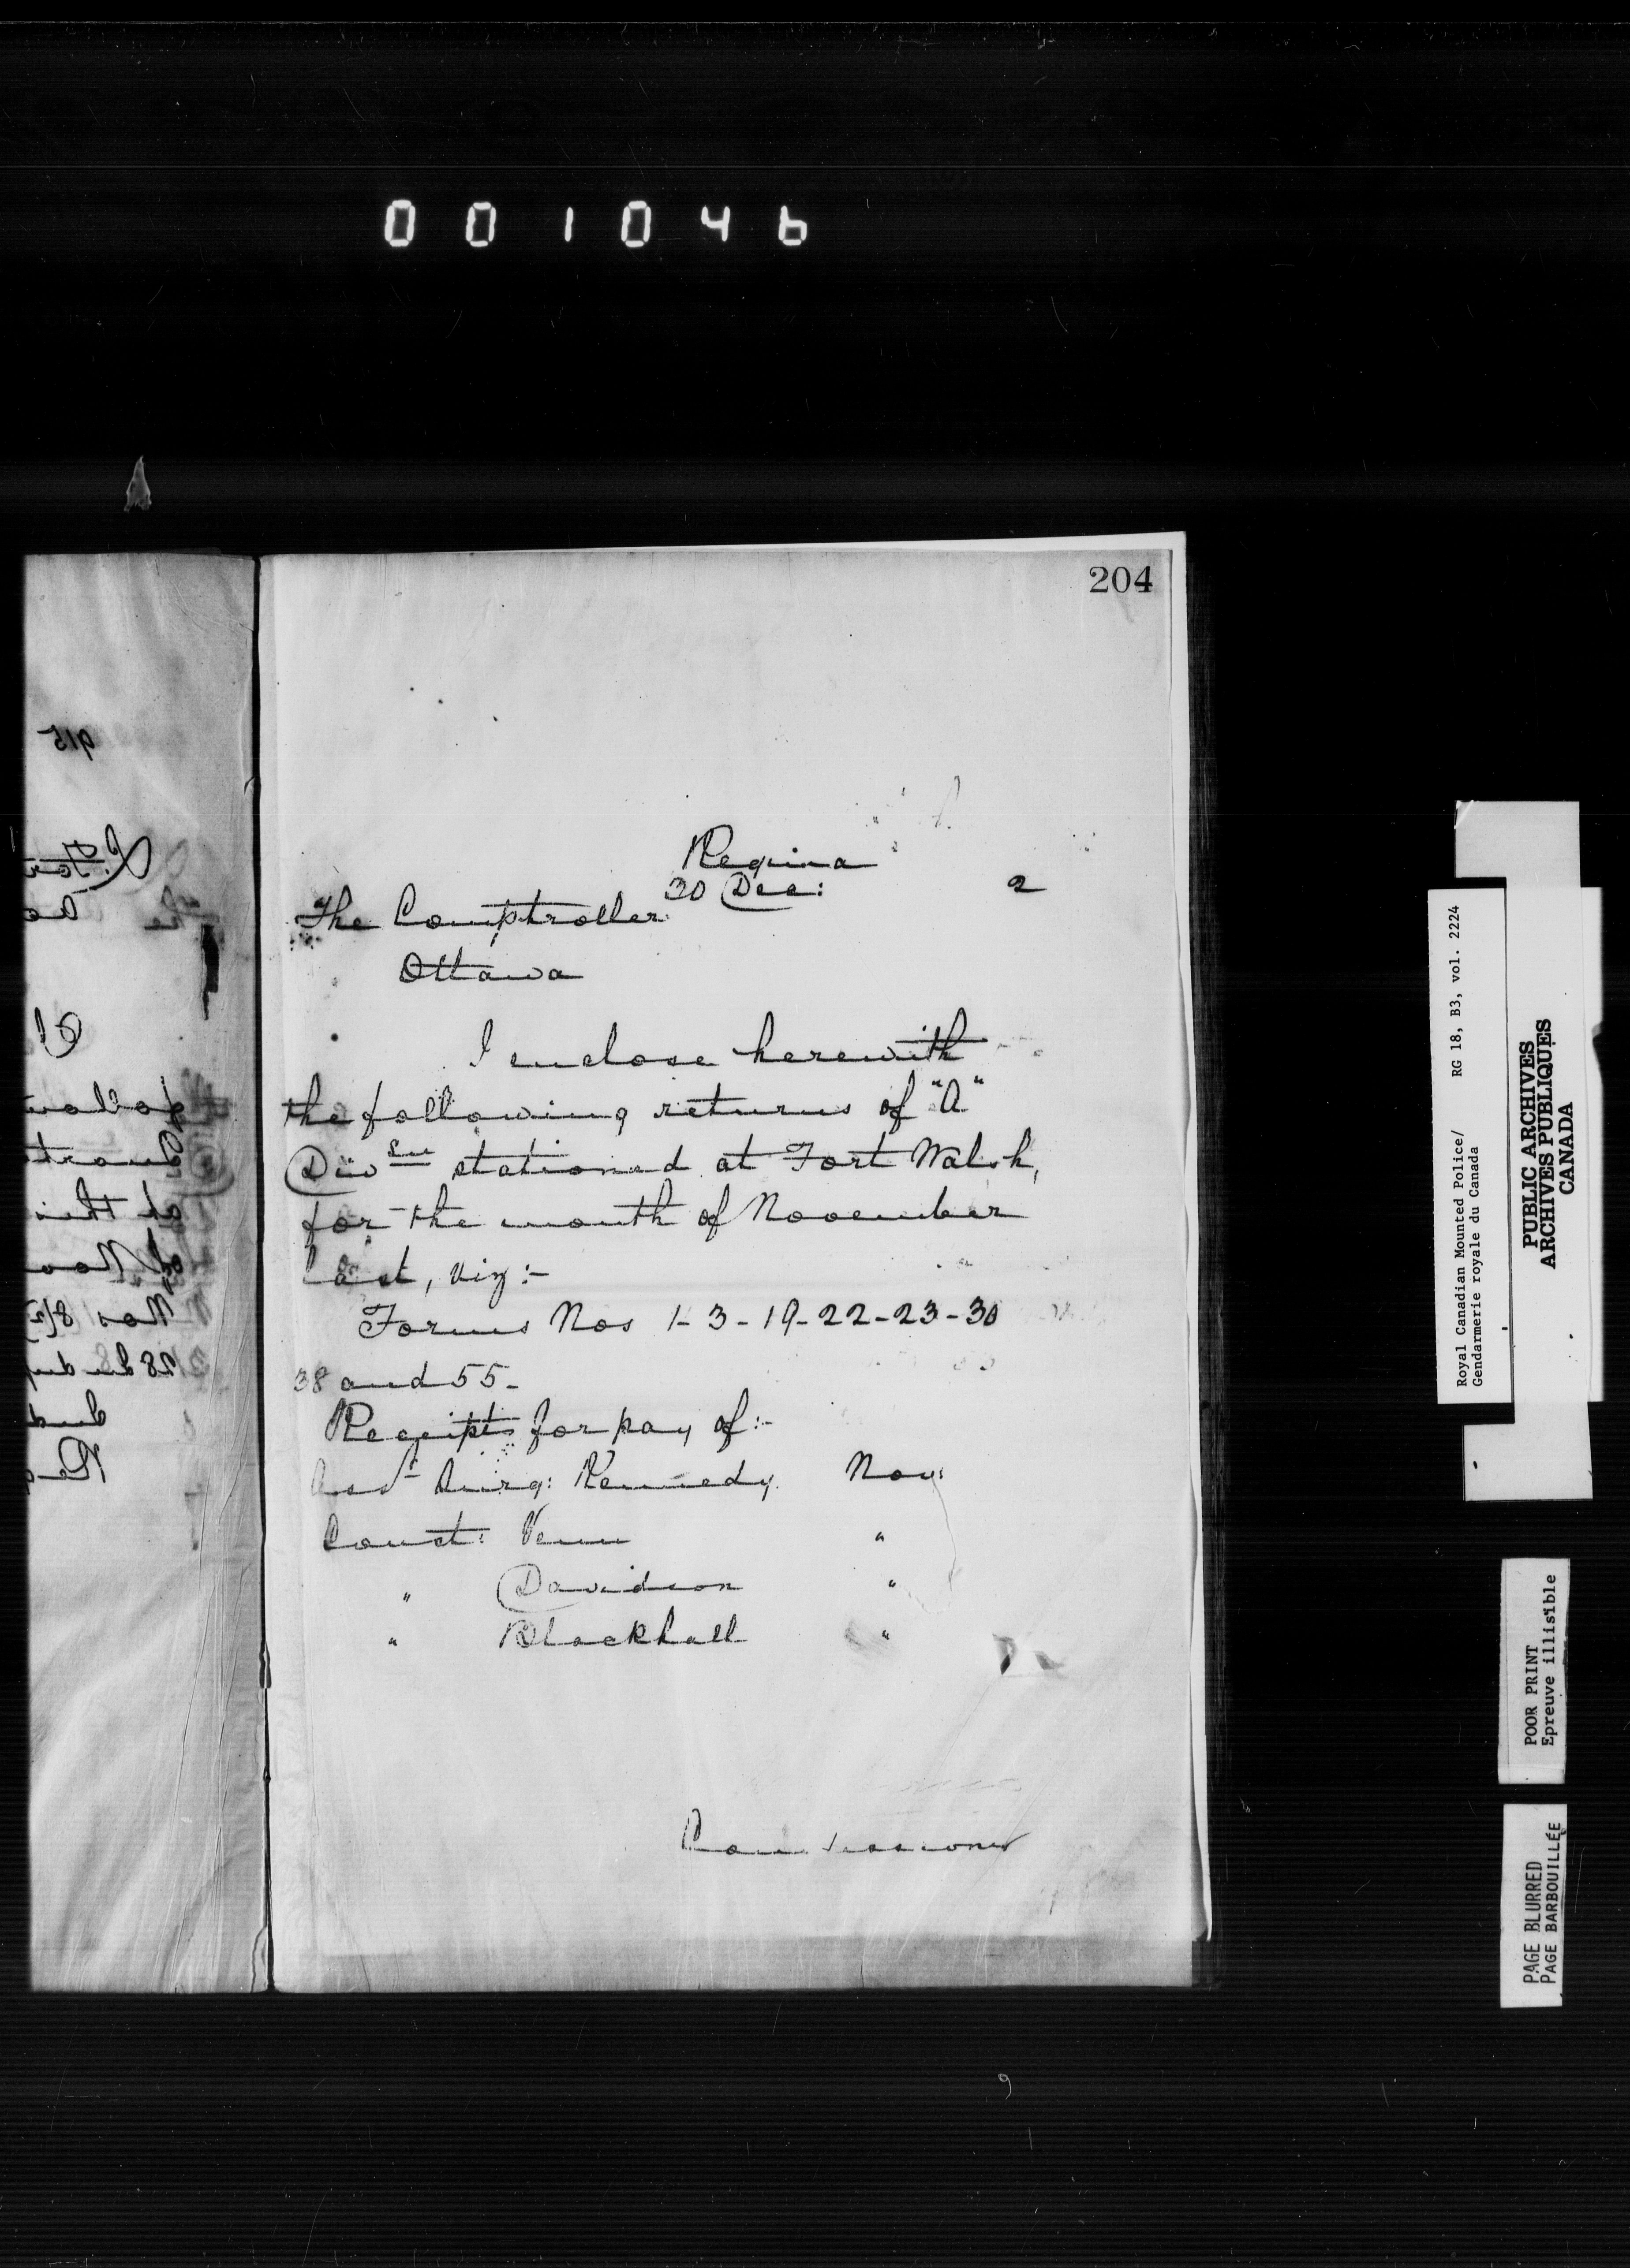 001046
204
Regina
30 Dec: 2
The Comptroller
Ottawa
I enclose herewith
the following returns of "A"
Divsn stationed at Fort Walsh,
for the month of November
last, viz:-
Forms Nos 1-3-19-22-23-30
38 and 55-
Receipts for pay of:-
Asst Surg: Kennedy. Nov:
Const: Venn "
" Davidson "
" Blackhall "
Commissioner
Royal Canadian Mounted Police/ RG 18, B3, vol. 2224
Gendarmerie royale du Canada
PUBLIC ARCHIVES
ARCHIVES PUBLIQUES
CANADA
POOR PRINT
Epreuve illisible
PAGE BLURRED
PAGE BARBOUILLÉE